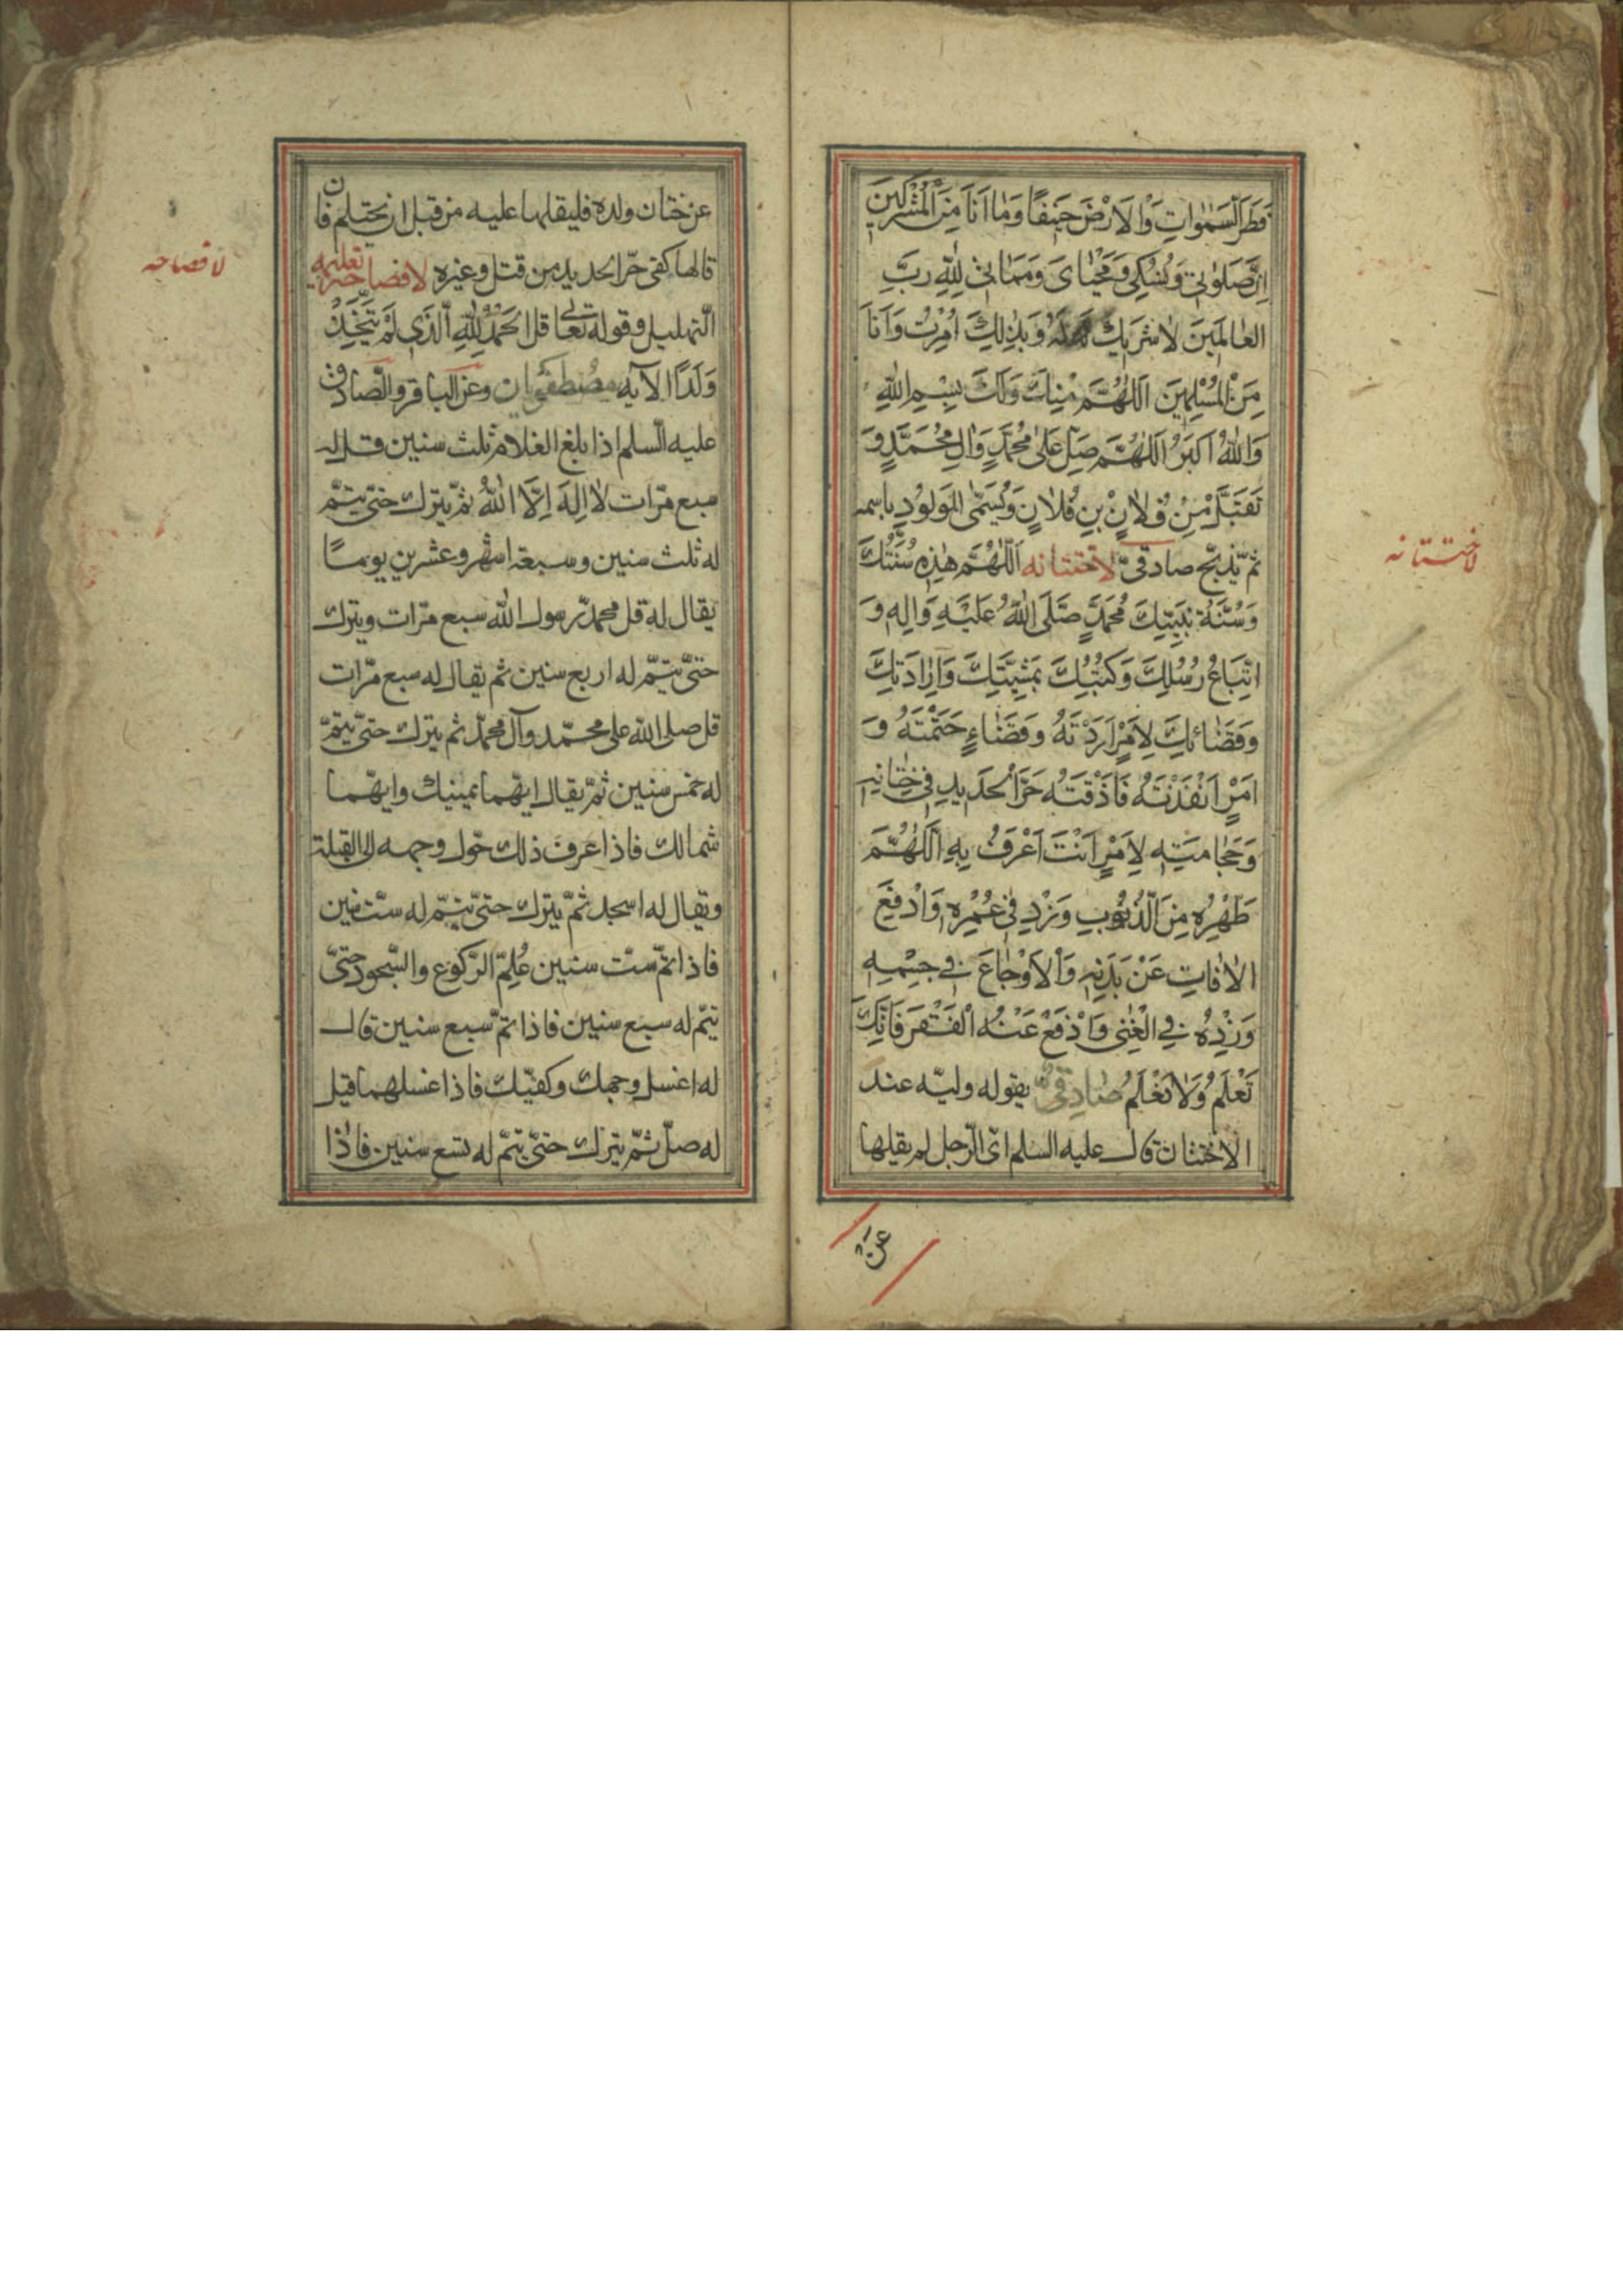 فَطَرَ السَّمٰوٰاتِ وَالْاَرْضَ حَنِيفًا وَمٰا اَنَا مِنَ الْمُشْرِكِينَ
اِنَّ صَلَوٰتِي وَنُسُكِي وَمَحْيٰاىَ وَمَمٰاتِي لِلّٰهِ رَبِّ
الْعٰالَمِينَ لاٰ شَرِيكَ لَهُ وَبِذٰلِكَ اُمِرْتُ وَاَنَا
مِنَ الْمُسْلِمِينَ اَللّٰهُمَّ مِنْكَ وَلَكَ بِسْمِ اللّٰهِ
وَاللّٰهُ اَكْبَرُ اَللّٰهُمَّ صَلِّ عَلىٰ مُحَمَّدٍ وَاٰلِ مُحَمَّدٍ وَ
تَقَبَّلْ مِنْ فُلاٰنِ بْنِ فُلاٰنٍ وَيُسَمَّى الْمَوْلُودِ باسمه
ثم يذبح صادقىّ لاختتانه اَللّٰهُمَّ هٰذِهِ سُنَّتُكَ
وَسُنَّةُ نَبِيِّكَ مُحَمَّدٍ صَلَّى اللّٰهُ عَلَيْهِ وَاٰلِهِ وَ
اتِّبَاعُ رُسُلِكَ وَكُتُبِكَ بِمَشِيَّتِكَ وَاِرٰادَتِكَ
وَقَضٰائِكَ لِاَمْرٍ اَرَدْتَهُ وَقَضٰاءٍ حَتَمْتَهُ وَ
اَمْرٍ اَنْفَذْتَهُ فَاَذَقْتَهُ حَرَّ الْحَدِيدِ فِي خِتٰانِهِ
وَحِجٰامَتِهِ لِاَمْرٍ اَنْتَ اَعْرَفُ بِهِ اَللّٰهُمَّ
طَهِّرْهُ مِنَ الذُّنُوبِ وَزِدْ فِي عُمْرِهِ وَادْفَعِ
الْاٰفٰاتِ عَنْ بَدَنِهِ وَالْاَوْجٰاعَ فِي جِسْمِهِ
وَزِدْهُ فِي الْغِنىٰ وَادْفَعْ عَنْهُ الْفَقْرَ فَاِنَّكَ
تَعْلَمُ وَلاٰ نَعْلَمُ صٰادِقىٌّ يقوله وليّه عند
الاختتان قال عليه السلم اىّ الرّجل لم يقلها
لاختتانه
عن
عن ختان ولده فليقلها عليه من قبل ان يحتلم فان
قالها كفى حرّ الحديد من قتل وغيره لافصاحه تعليمه
التهليل وقوله تعالى قل الْحَمْدُ لِلّٰهِ الَّذِي لَمْ يَتَّخِذْ
وَلَدًا الآيه مصطفويان وعن الباقر والصّادق
عليه السلم اذا بلغ الغلام ثلث سنين قل له
سبع مرّات لاٰ اِلٰهَ اِلَّا اللّٰهُ ثمّ يترك حتّى يتمّ
له ثلث سنين وسبعة اشهر وعشرين يومًا
يقال له قل محمد رسول اللّه سبع مرّات ويترك
حتّى يتمّ له اربع سنين ثم يقال له سبع مرّات
قل صلى اللّه على محمّد وآل محمّد ثم يترك حتّى يتمّ
له خمس سنين ثمّ يقال ايّهما يمينك وايّهما
شمالك فاذا عرف ذلك حوّل وجهه الى القبلة
ويقال له اسجد ثمّ يترك حتّى يتمّ له ستّ سنين
فاذا تمّ ستّ سنين عُلِّمَ الرّكوع والسّجود حتّىّ
يتمّ له سبع سنين فاذا تمّ سبع سنين قال
له اغسل وجهك وكفّيك فاذا غسلهما قيل
له صلّ ثمّ يترك حتّى يتمّ له تسع سنين فاذا
لافصاحه